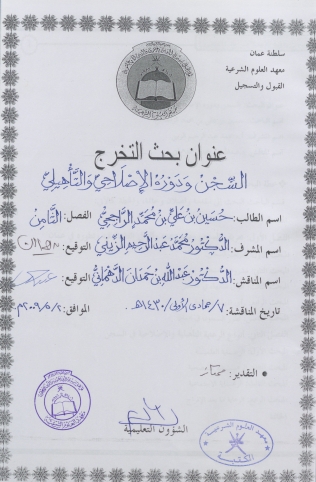 سلطنة عمان
معهد العلوم الشرعية
القبول والتسجيل
عنوان بحث التخرج
السجن ودوره الإصلاحي والتأهيلي
اسم الطالب: حسين بن علي بن محمد الراجحي الفصل: الثامن
اسم المشرف: الدكتور محمد عبدالرحيم الزيني التوقيع:
اسم المناقش: الدكتور عبدالله بن حمدان الدهماني التوقيع:
تاريخ المناقشة: ٧/جمادى الأولى/١٤٣٠هـ الموافق: ٢/٥/٢٠٠٩م
التقدير: ممتاز
الشؤون التعليمية
معهد العلوم الشرعية
المكتبة